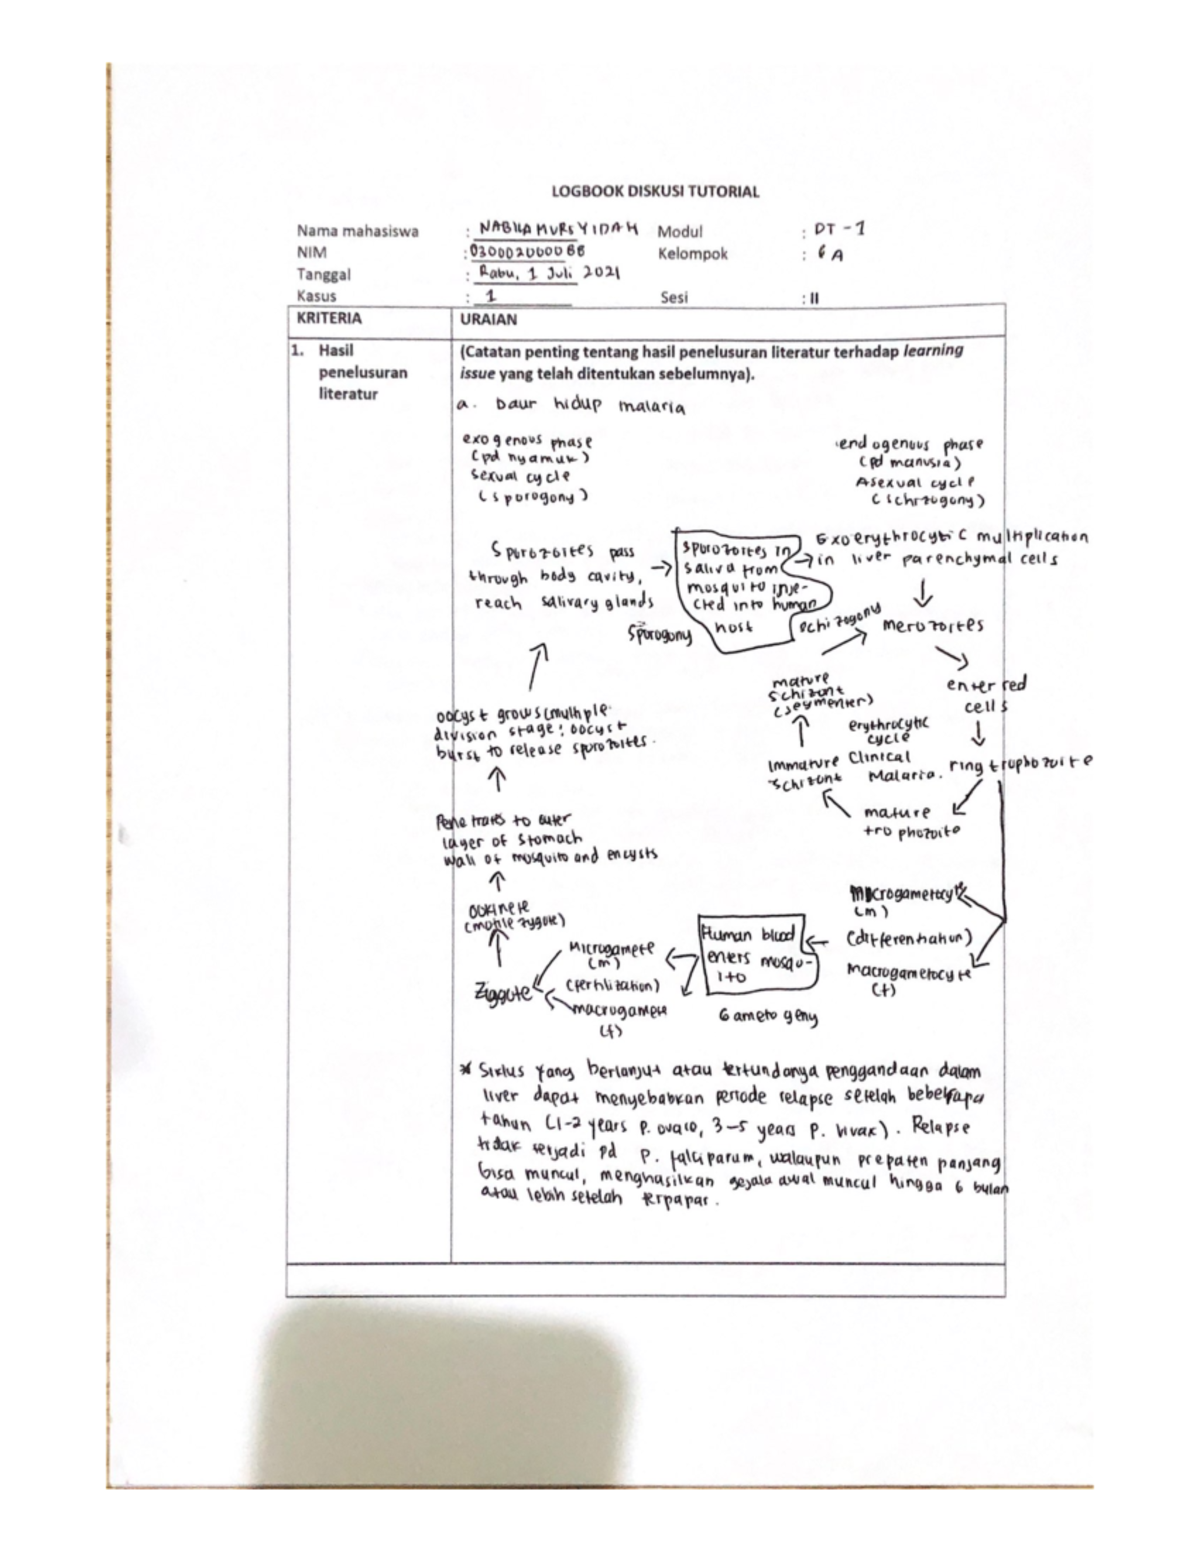 LOGBOOK DISKUSI TUTORIAL
Nama mahasiswa : NABILA MURSYIDAH Modul : DT - 1
NIM : 03000200008 Kelompok : 6 A
Tanggal : Rabu, 1 Juli 2021
Kasus : 1 Sesi : II
KRITERIA URAIAN
1. Hasil penelusuran literatur
(Catatan penting tentang hasil penelusuran literatur terhadap learning
issue yang telah ditentukan sebelumnya).
a. Daur hidup malaria
exogenous phase
(pd nyamuk)
Sexual cycle
(sporogony)
endogenuus phase
(pd manusia)
Asexual cycle
(schizogony)
Sporozoites pass
through body cavity,
reach salivary glands
sporozoites in
saliva from
mosquito inje-
cted into human
host
Exoerythrocytic multiplication
in liver parenchymal cells
Sporogony
schizogony
merozoites
enter red
cells
ring trophozoite
mature
trophozoite
Immature
schizont
mature
schizont
(segmenter)
erythrocytic
cycle
Clinical
Malaria.
microgametocyte
(m)
(differentiation)
macrogametocyte
(f)
Human blood
enters mosqu-
ito
Gametogeny
Microgamete
(m)
(fertilization)
macrogamete
(f)
Ziggote
Ookinete
(motile zygote)
Penetrates to outer
layer of stomach
wall of mosquito and encysts
oocyst grows (multiple
division stage; oocyst
burst to release sporozoites.
* Siklus yang berlanjut atau tertundanya penggandaan dalam
liver dapat menyebabkan periode relapse setelah beberapa
tahun (1-2 years p. ovale, 3-5 years p. vivax). Relapse
tidak terjadi pd p. falciparum, walaupun prepaten panjang
bisa muncul, menghasilkan gejala awal muncul hingga 6 bulan
atau lebih setelah terpapar.